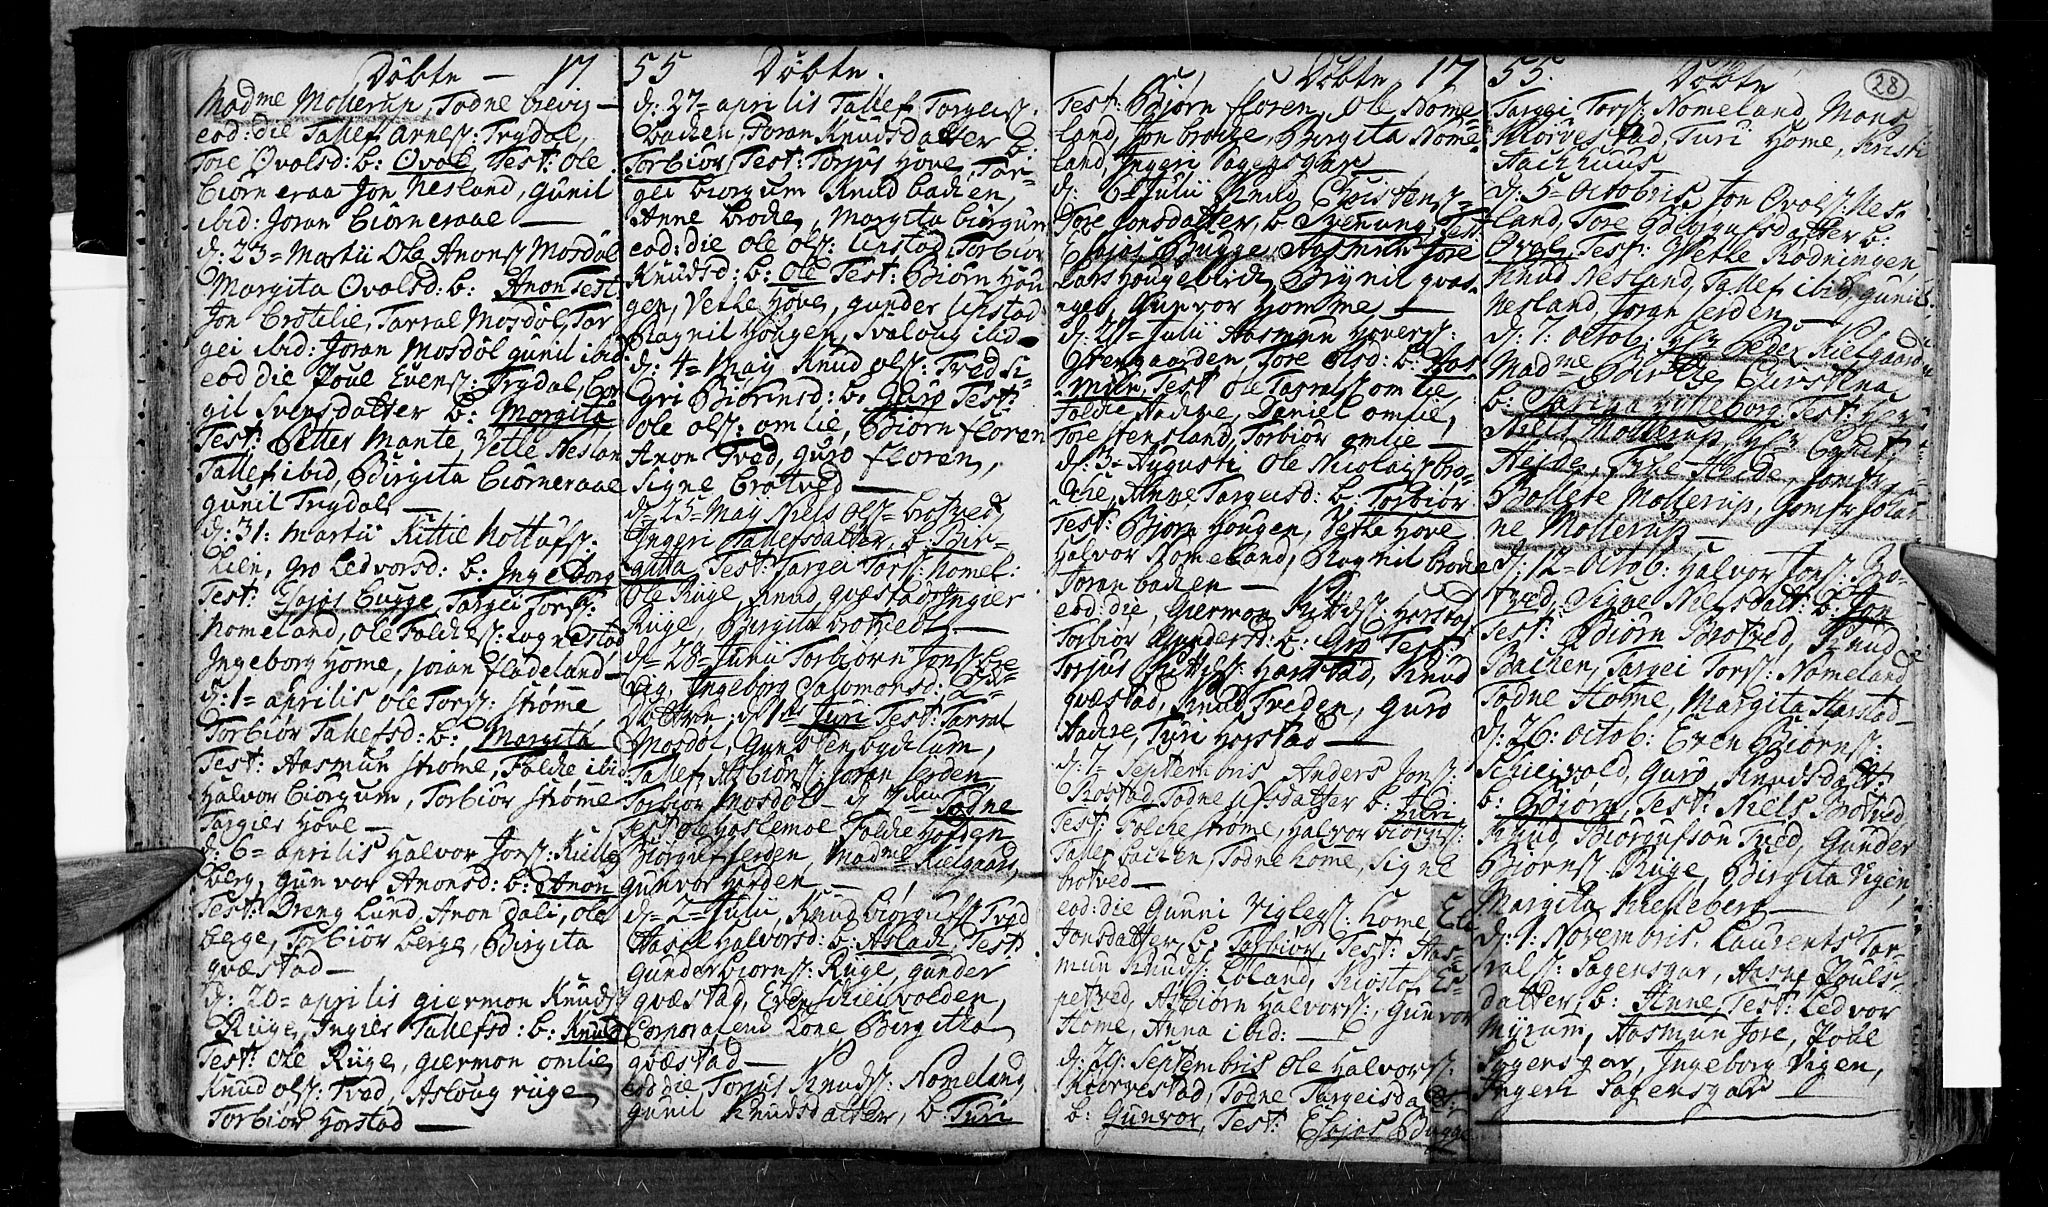 Döbte — 17
Madme Mollerup, Todne brevig —
eod: die Tallef Arness: Trydal,
Tore Ovalsd: b: Ovale Test: Ole
Biörneraa Jon Nesland, Gunil
ibid: Joran Biörneraae —
d: 23= Martii Ole Anonss Mosdöl
Margita Ovalsd: b: Anon Test
Jon Brottelie, Tarral Mosdöl, Tar
gei ibid: Joran Mosdöl gunil ibid:
eod die Poul Evens: Trydal, Bor
gil Svensdatter b: Margita
Test: Petter Mante, Vetle Neslan
Tallef ibid, Birgita Biörneraae
gunil Trydal —
d: 31: Martii Kittil Nottolfs:
Lien, Gro Ledvorsd: b: Ingeborg
Test: Esajas Bugge, Targei Tors:
Nomeland, Ole Folkes: Rognestad
Ingeborg Home, Joran fladeland —
d: 1= aprilis Ole Tors: Strömme
Torbiör Tallefsd: b: Margita
Test: Aasmun Ströme, Folcke ibid
Halvor Biörgum, Torbiör Ströme
Targier Hove —
d: 6= aprilis Halvor Jons: Kulle
berg, Gunvor Anonsd: b: Anon
Test: Dreng Lund, Anon Dali, Ole
berge, Torbiör berge, Birgita
qvæstad —
d: 20= aprilis giermon Knuds:
Rüge, Ingier Tallefsd: b: Knud
Test: Ole Rüge, giermon omlie
Knud ols: Tved, Asloug rüge
Torbiör Horstad —
55 Döbte.
d: 27= aprilis Tallef Targeis:
backen Joran Knudsdatter b:
Torbiör, Test: Torjus Hove, Tar=
gei biörgum Knud backen,
Anne brocke, Margita biörgum
eod: die Ole Ols: Upstad, Torbiör
Knudsd: b: Ole Test: Biörn Hou
gen, Vetle Hove, gunder Upstad
Ragnil Hougen, Svaloug ibid —
d: 4= May Knud Ols: Tved Si=
gri Biörnsd: b: Guro Test:
Ole ols: omlie, Biörn floren
Anon Tved, Guro floren,
Signe brotved —
d= 25= May Niels Ols= brotved
Ingeri Tallefsdatter, b: Bir=
gitta Test: Targei Tors: Nomel:
Ole Rüge, Knud qvæstad Ingier
Rüge, Birgita brotved —
d= 28= Junii Torbiorn Jons: bre
vig, Ingeborg Salomonsd: 2de
Dottren; d: 1te Turi Test: Tarral
Mosdöl, Gunsten bychlum,
Tallef Asbiöns: Joran Jerden
Torbiör Mosdöl — d 2den Todne
Test Ole Hoslemoe Folcke Horden
Biörguf Jerden Madme Kielgaard,
Gunvor Horden —
d= 2= Julii, Knud biörgufs Tved
Aasel Halvorsd: b: Aslack, Test:
Gunder biörns: Rüge, gunder
qvæstad, Even Schieivolden,
Corporalens kone, Birgitha
qvæstad —
eod die, Torjus Knuds: Nomeland
Gunil Knudsdatter, b: Turi
Döbte 17
Test: Biörn floren, Ole Nome=
land, Jon brocke, Birgita Nome=
land, Ingeri Sagensgar —
d: 6= Julii Knud Christens=
Tore Jonsdatter, b Svenung, Test:
Esajas Bugge, Aasmun Jore
Lars Hougebirck, Brynil qvas=
nes, Gunvor Homme —
d: 21= Julii Aasmun Hovers:
Steengaarden, Tore Olsd: b: Aas=
mün, Test Ole Tarals: omlie,
Folcke Aackre, Daniel omlie,
Tore Stensland, Torbiör omlie —
d: 3= Augusti Ole Nicolais: bro=
cke, Anne Targeisd: b: Torbiör
Test: Biörn Hougen, Vetle Hove
Halvor Nomeland, Ragnil brocke
Joran backen —
eod: die, Giermon Kittils: Horstad
Torbiör Gundersd: b: Gro Test:
Torjus Kittils: Harstad, Knud
qvæstad, Knud Treden, Guro
Aackre, Turi Horstad —
d: 7 Septembris Anders Jons:
Rostad, Todne Ulfsdatter b: Turi
Test: Folcke Ströme, Halvor biörgum:
Tallef backen, Todne home, Signe
brotved —
eod: die Gunni Viglegs: Home, Eli
Jonsdatter, b: Torbiör, Test: Aas=
mun Knuds: Loland, Kiostol Es=
petved, Asbiörn Halvors:, Gunvor
Home, Anna ibid: —
d: 29: Septembris Ole Halvors:
Kiorvestad, Todne Targeisdatt:
b: Gunvor, Test: Esajas Bugge
55. Döbte 28
Targei Tors: Nomeland, Mons
Kiorvestad, Turi Home, Kristi
Stackhuus
d: 5= Octobris, Jon Ovals: Nes=
land, Tore Biörgufsdatter b:
Ovale, Test: Vetle Rodningen
Knud Nesland, Tallef ibid, gunil:
Nesland, Joran Jerden —
d: 7: Octob: Hr Peder Kielgaard
Madme Birthe Christina
b: Hylleborg Test: Hr
Niels Mollerup, Hr
Heide, Heide, Jomfr
Bollete Mollerup, Jomfr
ne Mollerup —
d: 12= Octob: Halvor Jons: Bro=
tved, Signe Nielsdatt: b: Jon
Test: Biörn Brotved, Knud
Backen, Targei Tors: Nomeland
Todne Home, Margita Harstad —
d: 26: Octob: Even Biörns:
Schieivold, Guro Knudsdatt:
b: Biörn, Test: Niels Brotved
Knud Biorgufson Tved, Gunder
Biörns: Rüge, Birgita Vigen,
Margita Kulleberg —
d: 1: Novembris. Laurents Tar=
vals: Sagensgar, Aasne Pouls=
datter, b: Anne, Test: Ledvor
Myrum, Aasmun Jore, Poul
Sagensgar, Ingeborg Vigen,
Ingeri Sagensgar —